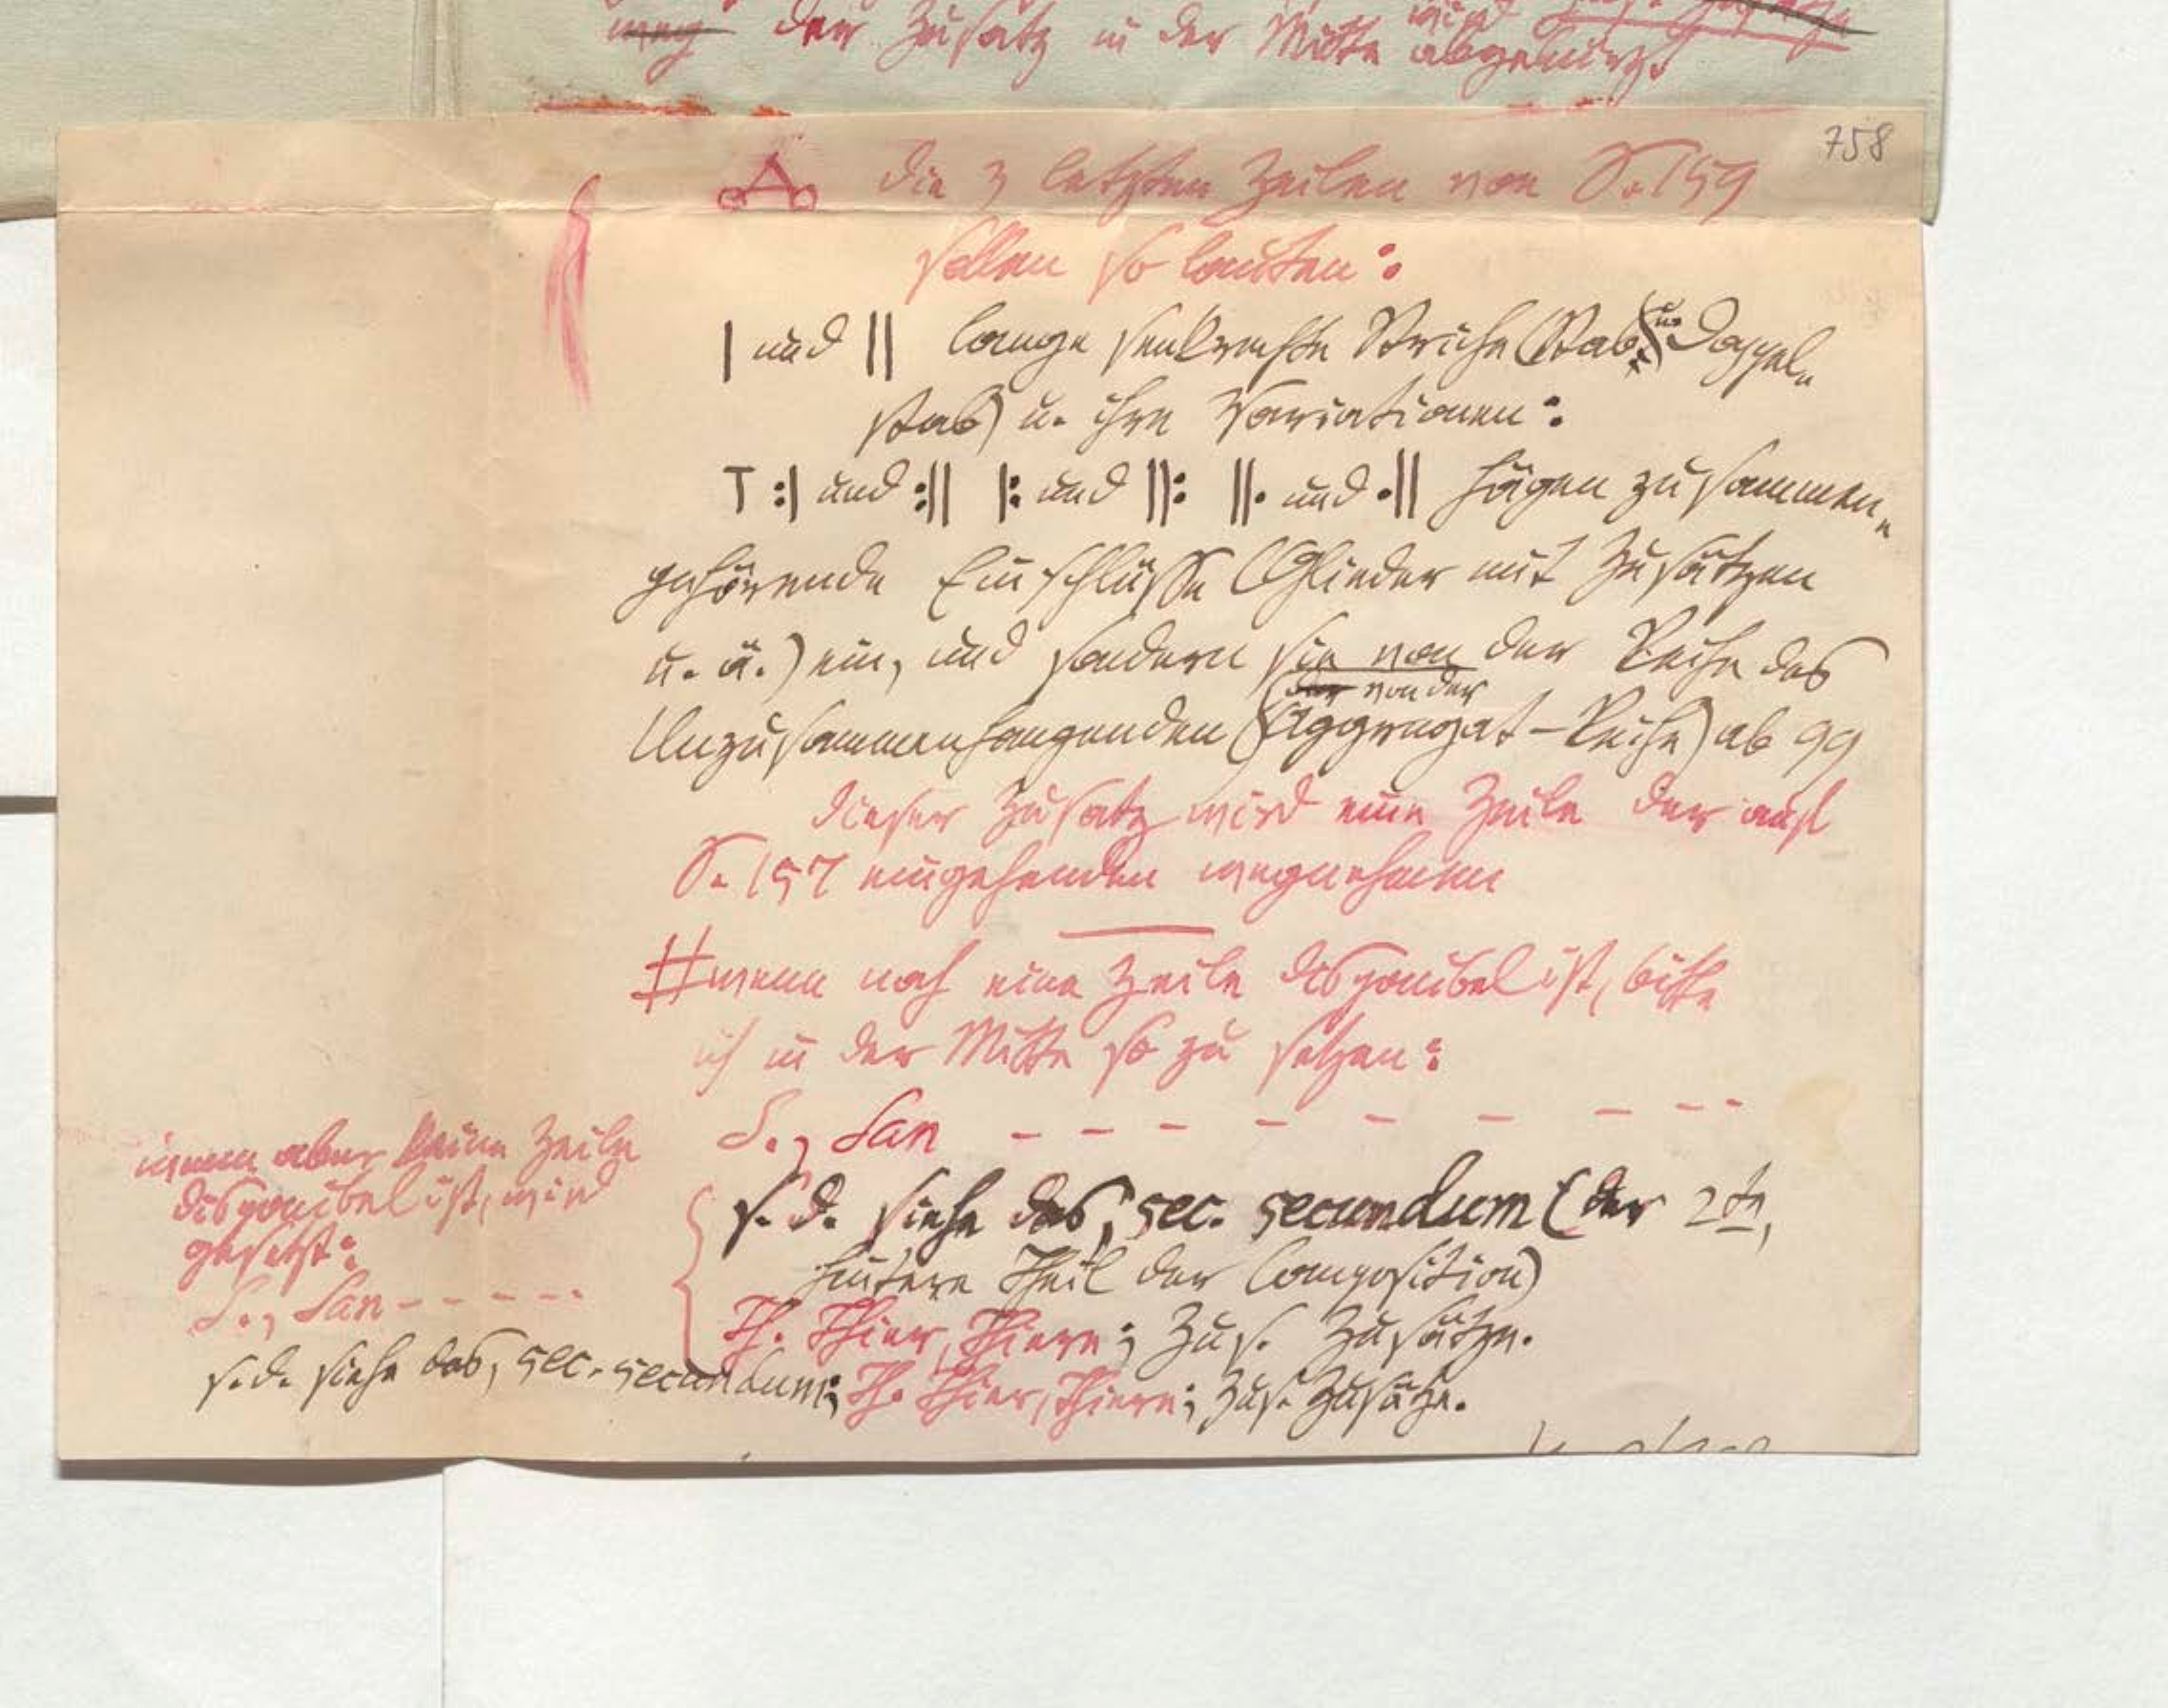 der Zusatz in der Mitte wird abgekürzt.
758
die 3 letzten Zeilen von S. 159
sollen so lauten:
| und || lange senkrechte Striche (Stab u. Doppel-
stab) u. ihre Variationen:
T :| und :|| |: und ||: ||· und ·|| fügen zusammen-
gehörende Einschlüsse (Glieder mit Zusätzen
u. ä.) ein, und sondern sie von der Reihe des
von der
Unzusammenhangenden (Aggregat-Reihe) ab 99
dieser Zusatz wird eine Zeile der auf
S. 157 eingehenden wegnehmen
# wenn noch eine Zeile disponibel ist, bitte
ich in der Mitte so zu setzen:
S., San - - - - - - - -
s. d. siehe das, sec. secundum (der 2te,
hintere Theil der Composition)
Th. Thier, Thiere; Zus. Zusätze.
wenn aber keine Zeile
disponibel ist, wird
gesetzt:
S., San - - - - -
s. d. siehe das, sec. secundum; Th. Thier, Thiere; Zus. Zusätze.